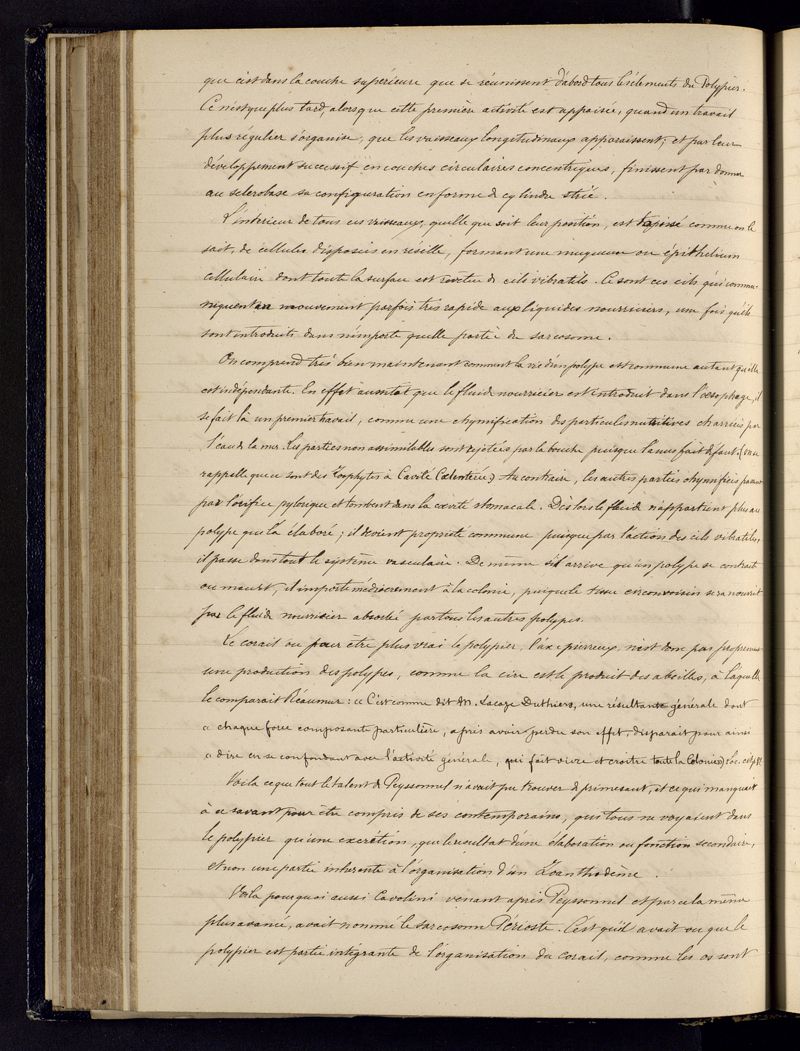 que c'est dans la couche supérieure que se réunissent d'abord tous les éléments du Polypier.
Ce n'est que plus tard, alors que cette première activité est appaisée, quand un travail
plus régulier s'organise, que les vaisseaux longitudinaux apparaissent, et par leur
développement successif, en couches circulaires concentriques, finissent par donner
au sclerobase sa configuration en forme de cylindre strié.
L'intérieur de tous ces vaisseaux, quelle que soit leur position, est tapissé comme on le
sait, de cellules disposées en résille, formant une muqueuse ou épithelium
cellulaire dont toute la surface est revetue de cils vibratils. Ce sont ces cils qui commu-
niquent un mouvement parfois très rapide aux liquides nourriciers, une fois qu'ils
sont introduits dans n'importe quelle partie du sarcosome.
On comprend très bien maintenant comment la vie d'un polype est commune autant qu'elle
est indépendante. En effet aussitot que le fluide nourricier est introduit dans l'œsophage, il
se fait là un premier travail, comme une chymification des particules nutritives charriées par
l'eau de la mer. Les parties non assimilables sont rejetées par la bouche puisque l'anus fait défaut. (on se
rappelle que ce sont des Zoophytes à Cavité Cœlentérée) Au contraire, les autres parties chymifiées passent
par l'orifice pylorique et tombent dans la cavité stomacale. Dès lors le fluide n'appartient plus au
polype qui l'a élaboré; il devient propriété commune puisque par l'action des cils vibratiles,
il passe dans tout le système vasculaire. De même s'il arrive qu'un polype se contracte
ou meurt, il importe médiocrement à la colonie, puisque le tissu circonvoisin sera nourrit
par le fluide nourricier absorbé par tous les autres polypes.
Le corail ou pour être plus vrai le polypier, l'axe pierreux, n'est donc pas proprement
une production des polypes, comme la cire est le produit des abeilles, à laquelle
le comparait Réaumur: « C'est comme dit M. Lacaze Duthiers, une résultante générale dont
« chaque force composante particulière, après avoir perdu son effet, disparait pour ainsi
« dire en se confondant avec l'activité générale, qui fait vivre et croitre toute la Colonie» Loc. cit. p.
Voilà ce que tout le talent de Peyssonnel n'avait pu trouver de primesaut, et ce qui manquait
à ce savant pour être compris de ses contemporains, qui tous ne voyaient dans
le polypier qu'une excrétion, que le résultat d'une élaboration ou fonction secondaire,
et non une partie inhérente à l'organisation d'un Zoanthodème.
Voilà pourquoi aussi Cavolini venant après Peyssonnel et par cela même
plus avancé, avait nommé le sarcosome Périoste. C'est qu'il avait vu que le
polypier est partie intégrante de l'organisation du corail, comme les os sont